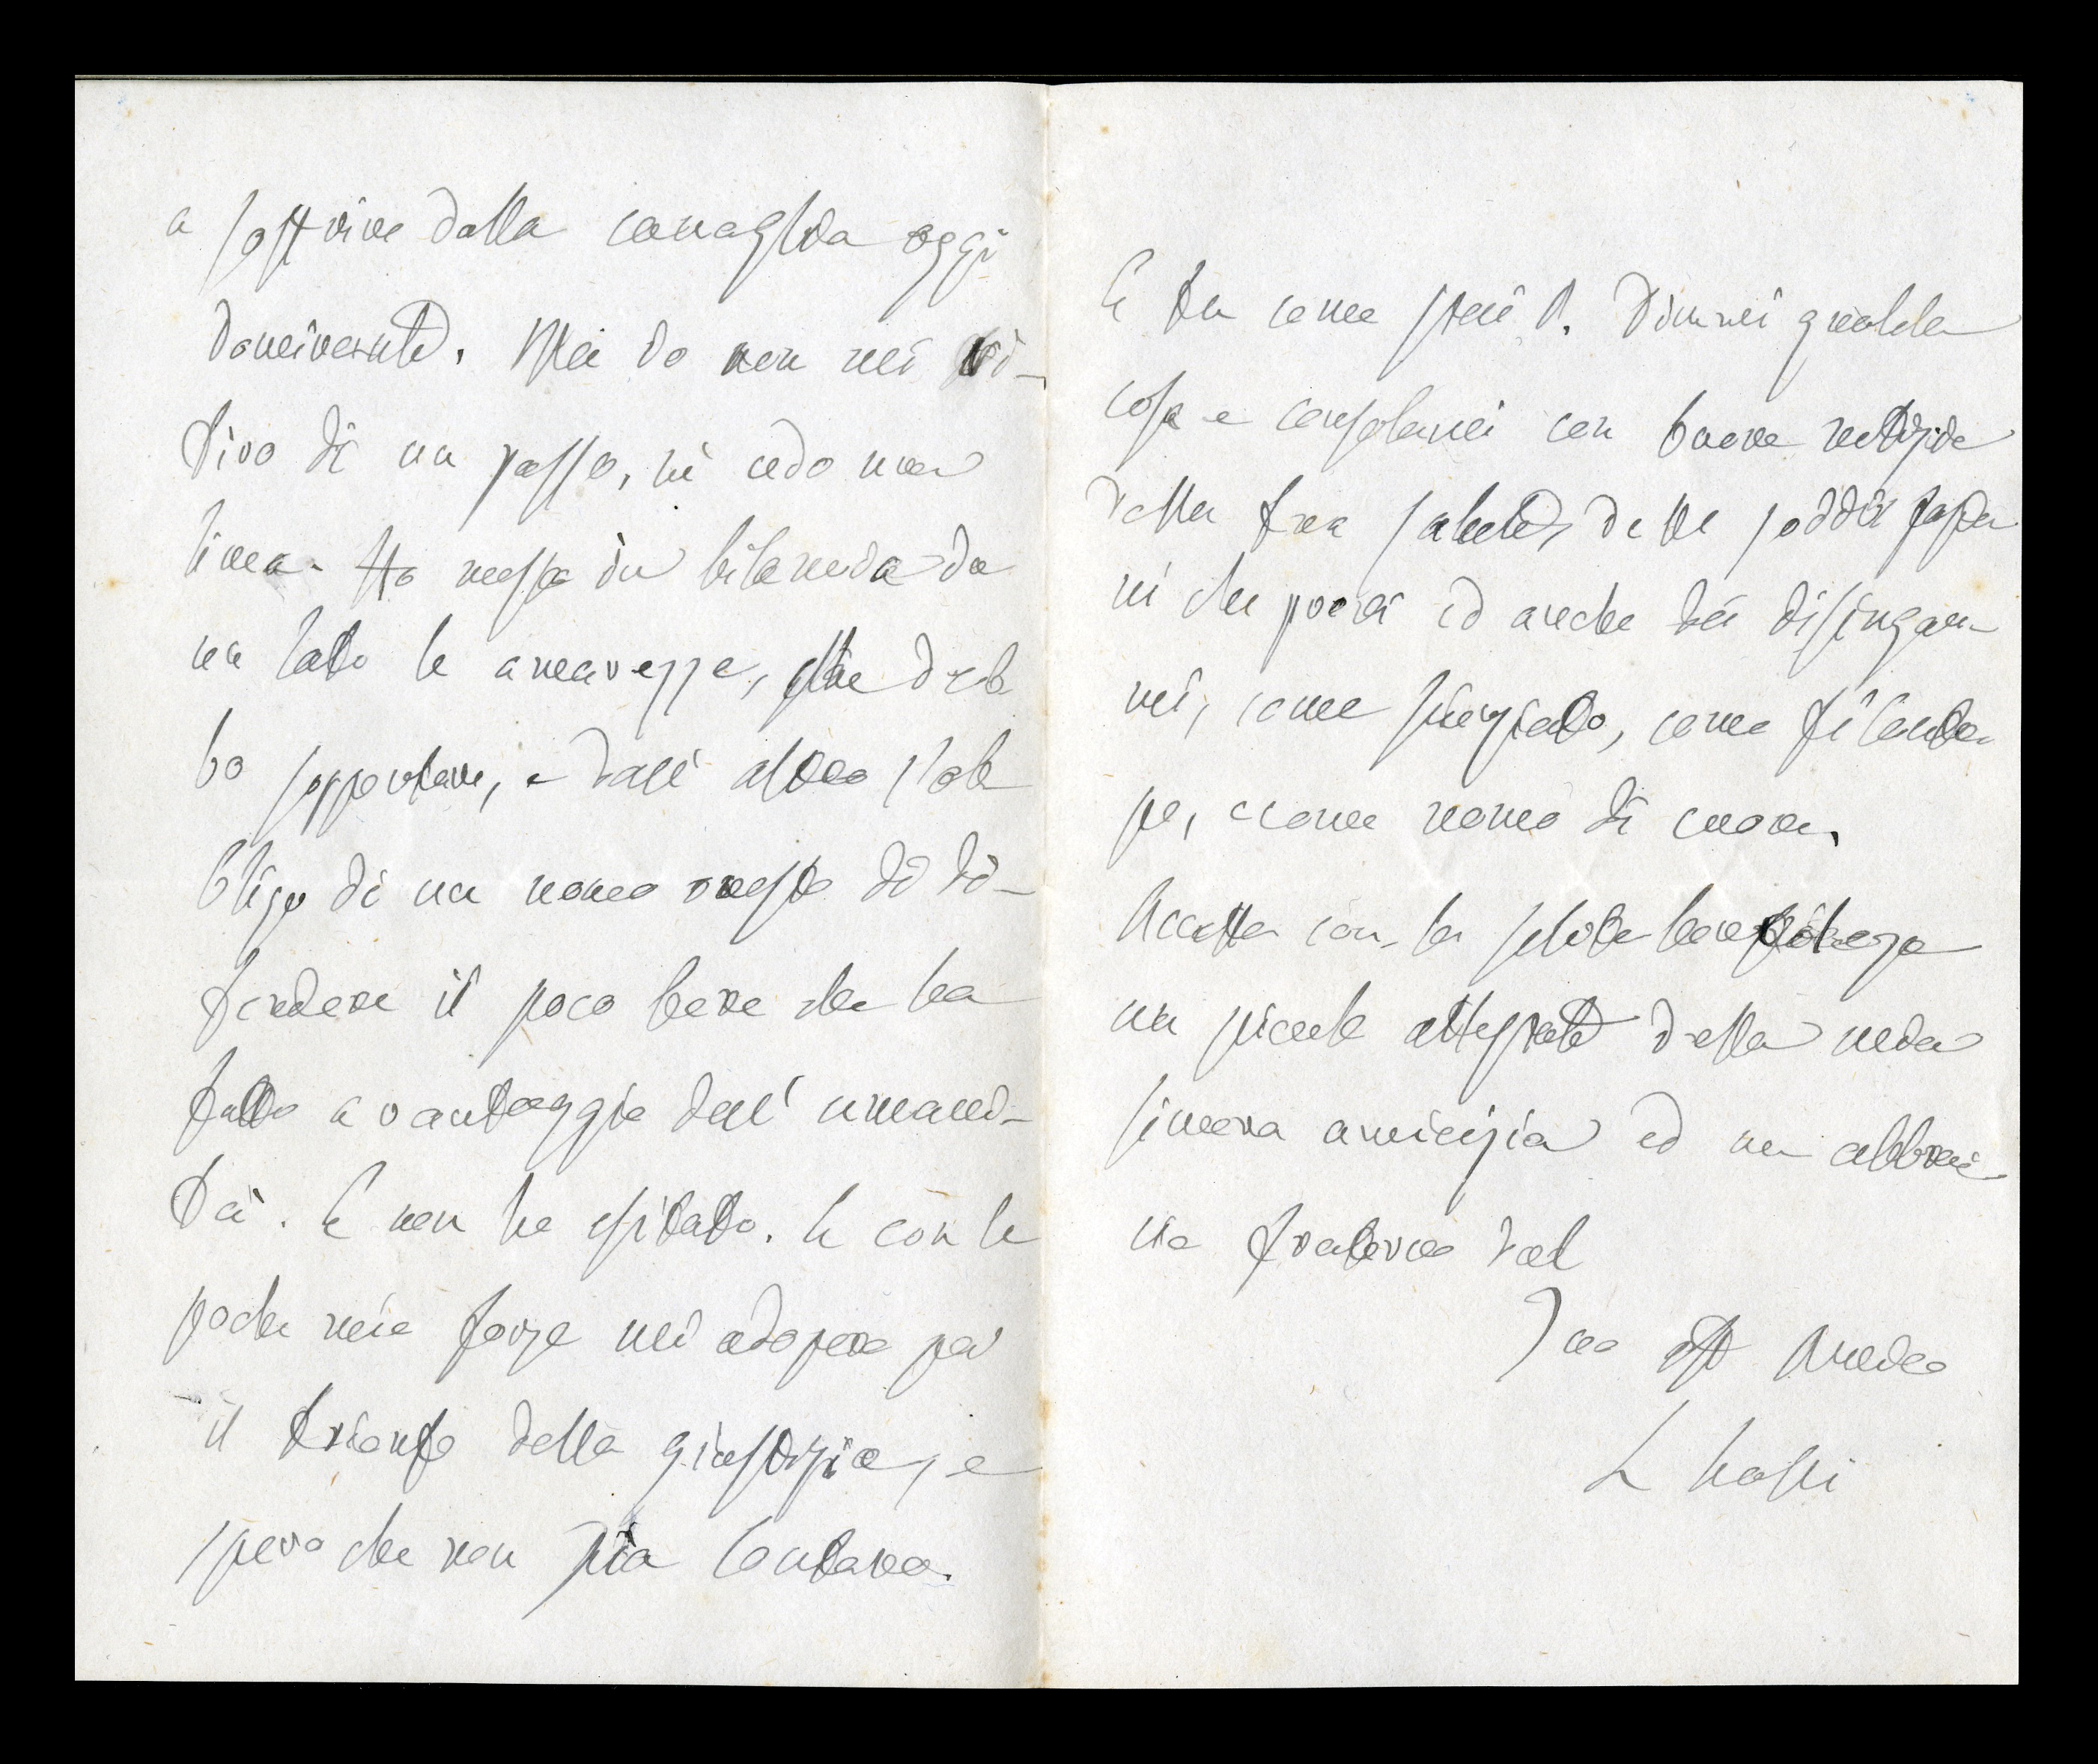 a soffrire dalla canaglia oggi
dominante. Ma io non mi ri-
tiro di un passo, nè cedo una
linea. Ho messo in bilancia da
un lato le amarezze, che deb
bo sopportare, e dall' altro l'ob
bligo di un uomo onesto di di-
fendere il poco bene che ha
fatto a vantaggio dell' umani-
tà. E non ho esitato. E con le
poche mie forze mi adopero per
il trionfo della giustizia, e
spero che non sia lontano.
E tu come stai?. Dimmi qualche
cosa e consolami con buone notizie
della tua salute, delle soddisfazio
ni che provi ed anche dei disingan-
ni, come scienziato, come filantro
po, e come uomo di cuore.
Accetta con la solita benevolenza
un piccolo attestato della mia
sincera amicizia ed un abbrac
cio fraterno dal
Tuo aff Amico
L